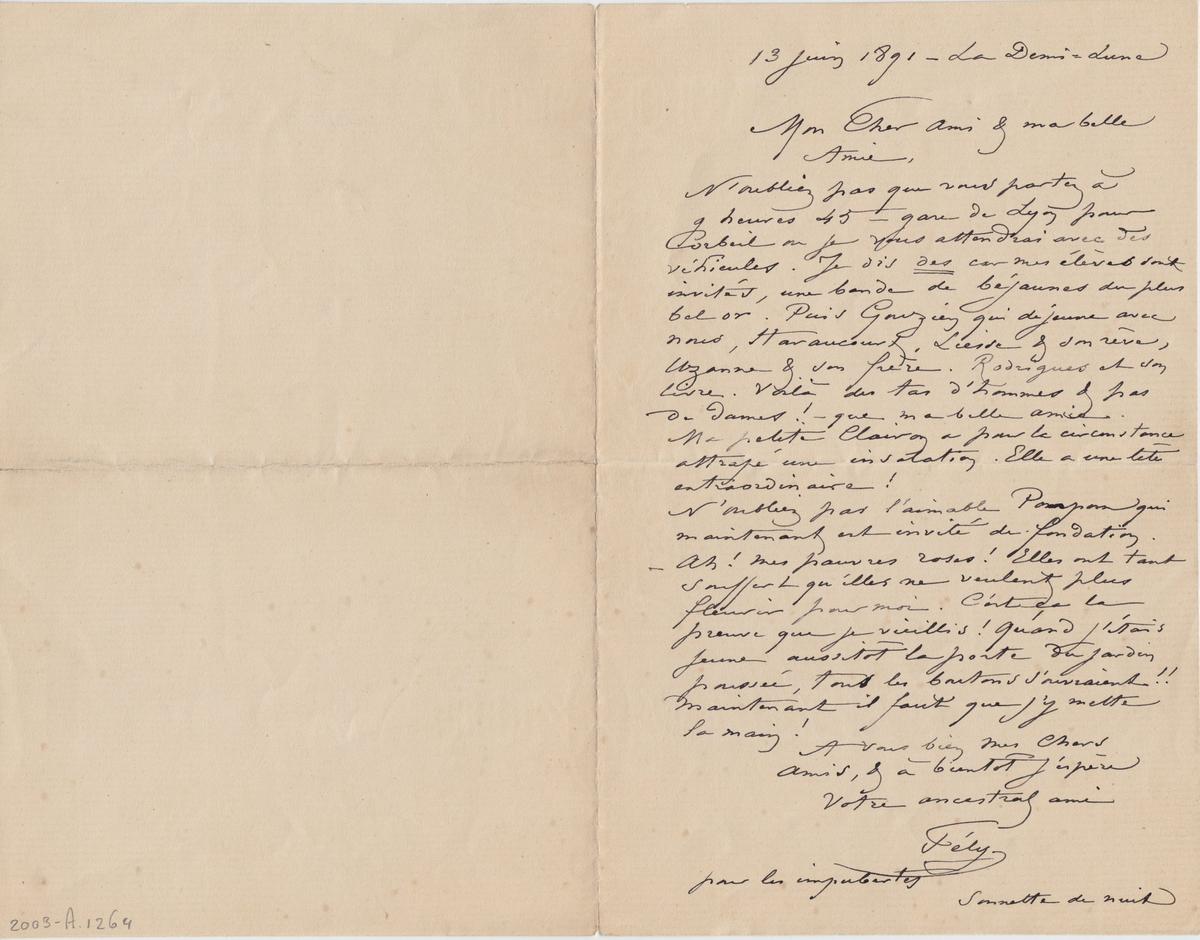 13 juin 1891 - La Demi=Lune
Mon Cher Ami & ma belle
Amie,
N'oubliez pas que vous partez à
9 heures 45 - gare de Lyon pour
Corbeil ou je vous attendrai avec des
véhicules. Je dis des car mes élèves sont
invités, une bande de béjaunes du plus
bel or. Puis Gouzien qui déjeune avec
nous, Haraucourt, Liesse & son rêve,
Uzanne & son frère. Rodrigues et son
livre. Voilà des tas d'hommes & pas
de dames !! - que ma belle amie.
Ma petite Clairon a pour la circonstance
attrapé une insolation. Elle a une tête
extraordinaire !
N'oubliez pas l'aimable Pompon qui
maintenant est invité de fondation.
- Ah ! mes pauvres roses ! Elles ont tant
souffert qu'elles ne veulent plus
fleurir pour moi. C'est ça la
preuve que je vieillis ! Quand j'étais
jeune aussitot la porte du jardin
poussée, tous les boutons s'ouvraient !!
Maintenant il faut que j'y mette
la main !
A vous bien mes Chers
Amis, & à bientot j'espère
Votre ancestral ami
Fély
pour les impubertes
Sonnette de nuit
2003-A.1264